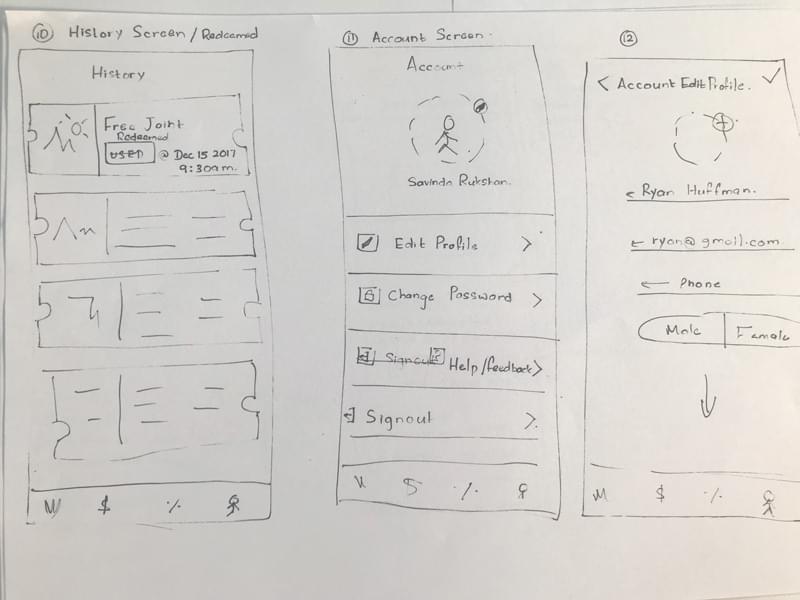 10 History Screen / Redeemed
History
Free Joint
Redeemed
USED @ Dec 15 2017
9:30am.
$ ./.
11 Account Screen.
Account
Savinda Rukshan.
Edit Profile >
Change Password >
Signout Help/feedback >
Signout >
$ ./.
12
< Account Edit Profile.
Ryan Huffman.
ryan@gmail.com
Phone
Male Female
M $ ./.